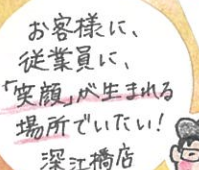 お客様に、
従業員に、
「笑顔」が生まれる
場所でいたい!
深江橋店